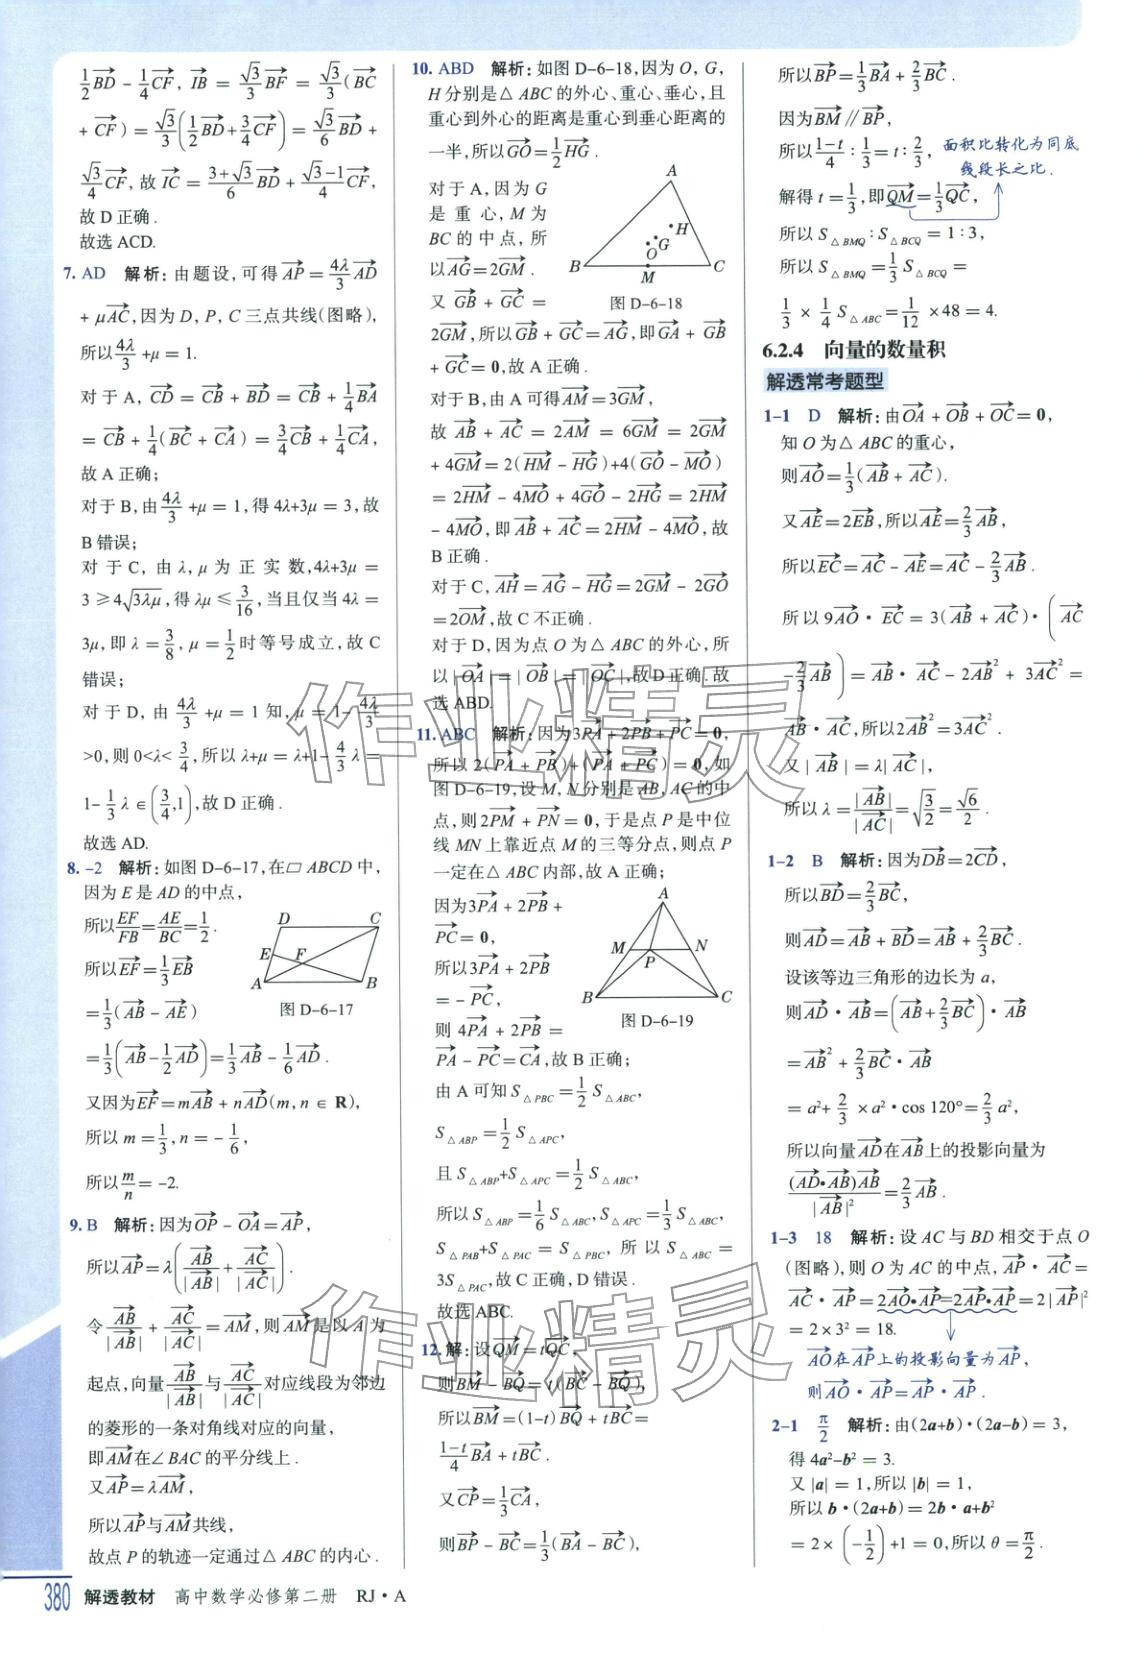 $\frac{1}{2}\overrightarrow{BD}-\frac{1}{4}\overrightarrow{CF}$, $\overrightarrow{IB}=\frac{\sqrt{3}}{3}\overrightarrow{BF}=\frac{\sqrt{3}}{3}(\overrightarrow{BC}$
$+\overrightarrow{CF})=\frac{\sqrt{3}}{3}\left(\frac{1}{2}\overrightarrow{BD}+\frac{3}{4}\overrightarrow{CF}\right)=\frac{\sqrt{3}}{6}\overrightarrow{BD}+$
$\frac{\sqrt{3}}{4}\overrightarrow{CF}$,故$\overrightarrow{IC}=\frac{3+\sqrt{3}}{6}\overrightarrow{BD}+\frac{\sqrt{3}-1}{4}\overrightarrow{CF}$,
故D正确.
故选ACD.
7. AD 解析:由题设,可得$\overrightarrow{AP}=\frac{4\lambda}{3}\overrightarrow{AD}$
$+\mu\overrightarrow{AC}$,因为D,P,C三点共线(图略),
所以$\frac{4\lambda}{3}+\mu=1$.
对于A,$\overrightarrow{CD}=\overrightarrow{CB}+\overrightarrow{BD}=\overrightarrow{CB}+\frac{1}{4}\overrightarrow{BA}$
$=\overrightarrow{CB}+\frac{1}{4}(\overrightarrow{BC}+\overrightarrow{CA})=\frac{3}{4}\overrightarrow{CB}+\frac{1}{4}\overrightarrow{CA}$,
故A正确;
对于B,由$\frac{4\lambda}{3}+\mu=1$,得$4\lambda+3\mu=3$,故
B错误;
对于C,由λ,μ为正实数,$4\lambda+3\mu=$
$3\geqslant4\sqrt{3\lambda\mu}$,得$\lambda\mu\leqslant\frac{3}{16}$,当且仅当$4\lambda=$
$3\mu$,即$\lambda=\frac{3}{8}$,$\mu=\frac{1}{2}$时等号成立,故C
错误;
对于D,由$\frac{4\lambda}{3}+\mu=1$知,$\mu=1-\frac{4\lambda}{3}$
$>0$,则$0<\lambda<\frac{3}{4}$,所以$\lambda+\mu=\lambda+1-\frac{4}{3}\lambda=$
$1-\frac{1}{3}\lambda\in\left(\frac{3}{4},1\right)$,故D正确.
故选AD.
8. -2 解析:如图D-6-17,在▱ABCD中,
因为E是AD的中点,
所以$\frac{EF}{FB}=\frac{AE}{BC}=\frac{1}{2}$.
所以$\overrightarrow{EF}=\frac{1}{3}\overrightarrow{EB}$
$=\frac{1}{3}(\overrightarrow{AB}-\overrightarrow{AE})$
D C
E F
A B
图D-6-17
$=\frac{1}{3}\left(\overrightarrow{AB}-\frac{1}{2}\overrightarrow{AD}\right)=\frac{1}{3}\overrightarrow{AB}-\frac{1}{6}\overrightarrow{AD}$.
又因为$\overrightarrow{EF}=m\overrightarrow{AB}+n\overrightarrow{AD}(m,n\in\mathbf{R})$,
所以$m=\frac{1}{3},n=-\frac{1}{6}$,
所以$\frac{m}{n}=-2$.
9. B 解析:因为$\overrightarrow{OP}-\overrightarrow{OA}=\overrightarrow{AP}$,
所以$\overrightarrow{AP}=\lambda\left(\frac{\overrightarrow{AB}}{|\overrightarrow{AB}|}+\frac{\overrightarrow{AC}}{|\overrightarrow{AC}|}\right)$.
令$\frac{\overrightarrow{AB}}{|\overrightarrow{AB}|}+\frac{\overrightarrow{AC}}{|\overrightarrow{AC}|}=\overrightarrow{AM}$,则$\overrightarrow{AM}$是以A为
起点,向量$\frac{\overrightarrow{AB}}{|\overrightarrow{AB}|}$与$\frac{\overrightarrow{AC}}{|\overrightarrow{AC}|}$对应线段为邻边
的菱形的一条对角线对应的向量,
即$\overrightarrow{AM}$在∠BAC的平分线上.
又$\overrightarrow{AP}=\lambda\overrightarrow{AM}$,
所以$\overrightarrow{AP}$与$\overrightarrow{AM}$共线,
故点P的轨迹一定通过△ABC的内心.
10. ABD 解析:如图D-6-18,因为O,G,
H分别是△ABC的外心、重心、垂心,且
重心到外心的距离是重心到垂心距离的
一半,所以$\overrightarrow{GO}=\frac{1}{2}\overrightarrow{HG}$.
对于A,因为G
是重心,M为
BC的中点,所
以$\overrightarrow{AG}=2\overrightarrow{GM}$.
又$\overrightarrow{GB}+\overrightarrow{GC}=$
A
H
G
O
B M C
图D-6-18
$2\overrightarrow{GM}$,所以$\overrightarrow{GB}+\overrightarrow{GC}=\overrightarrow{AG}$,即$\overrightarrow{GA}+\overrightarrow{GB}$
$+\overrightarrow{GC}=\mathbf{0}$,故A正确.
对于B,由A可得$\overrightarrow{AM}=3\overrightarrow{GM}$,
故$\overrightarrow{AB}+\overrightarrow{AC}=2\overrightarrow{AM}=6\overrightarrow{GM}=2\overrightarrow{GM}$
$+4\overrightarrow{GM}=2(\overrightarrow{HM}-\overrightarrow{HG})+4(\overrightarrow{GO}-\overrightarrow{MO})$
$=2\overrightarrow{HM}-4\overrightarrow{MO}+4\overrightarrow{GO}-2\overrightarrow{HG}=2\overrightarrow{HM}$
$-4\overrightarrow{MO}$,即$\overrightarrow{AB}+\overrightarrow{AC}=2\overrightarrow{HM}-4\overrightarrow{MO}$,故
B正确.
对于C,$\overrightarrow{AH}=\overrightarrow{AG}-\overrightarrow{HG}=2\overrightarrow{GM}-2\overrightarrow{GO}$
$=2\overrightarrow{OM}$,故C不正确.
对于D,因为点O为△ABC的外心,所
以$|\overrightarrow{OA}|=|\overrightarrow{OB}|=|\overrightarrow{OC}|$,故D正确.故
选ABD.
11. ABC 解析:因为$3\overrightarrow{PA}+2\overrightarrow{PB}+\overrightarrow{PC}=\mathbf{0}$,
所以$2(\overrightarrow{PA}+\overrightarrow{PB})+(\overrightarrow{PA}+\overrightarrow{PC})=\mathbf{0}$,如
图D-6-19,设M,N分别是AB,AC的中
点,则$2\overrightarrow{PM}+\overrightarrow{PN}=\mathbf{0}$,于是点P是中位
线MN上靠近点M的三等分点,则点P
一定在△ABC内部,故A正确;
因为$3\overrightarrow{PA}+2\overrightarrow{PB}+$
$\overrightarrow{PC}=\mathbf{0}$,
所以$3\overrightarrow{PA}+2\overrightarrow{PB}$
$=-\overrightarrow{PC}$,
则$4\overrightarrow{PA}+2\overrightarrow{PB}=$
A
M N
P
B C
图D-6-19
$\overrightarrow{PA}-\overrightarrow{PC}=\overrightarrow{CA}$,故B正确;
由A可知$S_{△PBC}=\frac{1}{2}S_{△ABC}$,
$S_{△ABP}=\frac{1}{2}S_{△APC}$,
且$S_{△ABP}+S_{△APC}=\frac{1}{2}S_{△ABC}$,
所以$S_{△ABP}=\frac{1}{6}S_{△ABC},S_{△APC}=\frac{1}{3}S_{△ABC}$,
$S_{△PAB}+S_{△PAC}=S_{△PBC}$,所以$S_{△ABC}=$
$3S_{△PAC}$,故C正确,D错误.
故选ABC.
12. 解:设$\overrightarrow{QM}=t\overrightarrow{QC}$,
则$\overrightarrow{BM}-\overrightarrow{BQ}=t(\overrightarrow{BC}-\overrightarrow{BQ})$,
所以$\overrightarrow{BM}=(1-t)\overrightarrow{BQ}+t\overrightarrow{BC}=$
$\frac{1-t}{4}\overrightarrow{BA}+t\overrightarrow{BC}$.
又$\overrightarrow{CP}=\frac{1}{3}\overrightarrow{CA}$,
则$\overrightarrow{BP}-\overrightarrow{BC}=\frac{1}{3}(\overrightarrow{BA}-\overrightarrow{BC})$,
所以$\overrightarrow{BP}=\frac{1}{3}\overrightarrow{BA}+\frac{2}{3}\overrightarrow{BC}$.
因为$\overrightarrow{BM}∥\overrightarrow{BP}$,
所以$\frac{1-t}{4}:\frac{1}{3}=t:\frac{2}{3}$,
面积比转化为同底
线段长之比.
解得$t=\frac{1}{3}$,即$\overrightarrow{QM}=\frac{1}{3}\overrightarrow{QC}$,
所以$S_{△BMQ}:S_{△BCQ}=1:3$,
所以$S_{△BMQ}=\frac{1}{3}S_{△BCQ}=$
$\frac{1}{3}\times\frac{1}{4}S_{△ABC}=\frac{1}{12}\times48=4$.
6.2.4 向量的数量积
解透常考题型
1-1 D 解析:由$\overrightarrow{OA}+\overrightarrow{OB}+\overrightarrow{OC}=\mathbf{0}$,
知O为△ABC的重心,
则$\overrightarrow{AO}=\frac{1}{3}(\overrightarrow{AB}+\overrightarrow{AC})$.
又$\overrightarrow{AE}=2\overrightarrow{EB}$,所以$\overrightarrow{AE}=\frac{2}{3}\overrightarrow{AB}$,
所以$\overrightarrow{EC}=\overrightarrow{AC}-\overrightarrow{AE}=\overrightarrow{AC}-\frac{2}{3}\overrightarrow{AB}$.
所以$9\overrightarrow{AO}\cdot\overrightarrow{EC}=3(\overrightarrow{AB}+\overrightarrow{AC})\cdot\left(\overrightarrow{AC}\right.$
$\left.-\frac{2}{3}\overrightarrow{AB}\right)=\overrightarrow{AB}\cdot\overrightarrow{AC}-2\overrightarrow{AB}^2+3\overrightarrow{AC}^2=$
$\overrightarrow{AB}\cdot\overrightarrow{AC}$,所以$2\overrightarrow{AB}^2=3\overrightarrow{AC}^2$.
又$|\overrightarrow{AB}|=\lambda|\overrightarrow{AC}|$,
所以$\lambda=\frac{|\overrightarrow{AB}|}{|\overrightarrow{AC}|}=\sqrt{\frac{3}{2}}=\frac{\sqrt{6}}{2}$.
1-2 B 解析:因为$\overrightarrow{DB}=2\overrightarrow{CD}$,
所以$\overrightarrow{BD}=\frac{2}{3}\overrightarrow{BC}$,
则$\overrightarrow{AD}=\overrightarrow{AB}+\overrightarrow{BD}=\overrightarrow{AB}+\frac{2}{3}\overrightarrow{BC}$.
设该等边三角形的边长为a,
则$\overrightarrow{AD}\cdot\overrightarrow{AB}=\left(\overrightarrow{AB}+\frac{2}{3}\overrightarrow{BC}\right)\cdot\overrightarrow{AB}$
$=\overrightarrow{AB}^2+\frac{2}{3}\overrightarrow{BC}\cdot\overrightarrow{AB}$
$=a^2+\frac{2}{3}\times a^2\cdot\cos120°=\frac{2}{3}a^2$,
所以向量$\overrightarrow{AD}$在$\overrightarrow{AB}$上的投影向量为
$\frac{(\overrightarrow{AD}\cdot\overrightarrow{AB})\overrightarrow{AB}}{|\overrightarrow{AB}|^2}=\frac{2}{3}\overrightarrow{AB}$.
1-3 18 解析:设AC与BD相交于点O
(图略),则O为AC的中点,$\overrightarrow{AP}\cdot\overrightarrow{AC}=$
$\overrightarrow{AC}\cdot\overrightarrow{AP}=2\overrightarrow{AO}\cdot\overrightarrow{AP}=2\overrightarrow{AP}\cdot\overrightarrow{AP}=2|\overrightarrow{AP}|^2$
$=2\times3^2=18$.
$\overrightarrow{AO}$在$\overrightarrow{AP}$上的投影向量为$\overrightarrow{AP}$,
则$\overrightarrow{AO}\cdot\overrightarrow{AP}=\overrightarrow{AP}\cdot\overrightarrow{AP}$.
2-1 $\frac{\pi}{2}$ 解析:由$(2\boldsymbol{a}+\boldsymbol{b})\cdot(2\boldsymbol{a}-\boldsymbol{b})=3$,
得$4\boldsymbol{a}^2-\boldsymbol{b}^2=3$.
又$|\boldsymbol{a}|=1$,所以$|\boldsymbol{b}|=1$,
所以$\boldsymbol{b}\cdot(2\boldsymbol{a}+\boldsymbol{b})=2\boldsymbol{b}\cdot\boldsymbol{a}+\boldsymbol{b}^2$
$=2\times\left(-\frac{1}{2}\right)+1=0$,所以$\theta=\frac{\pi}{2}$.
380 解透教材 高中数学必修第二册 RJ·A
作业精灵
作业精灵